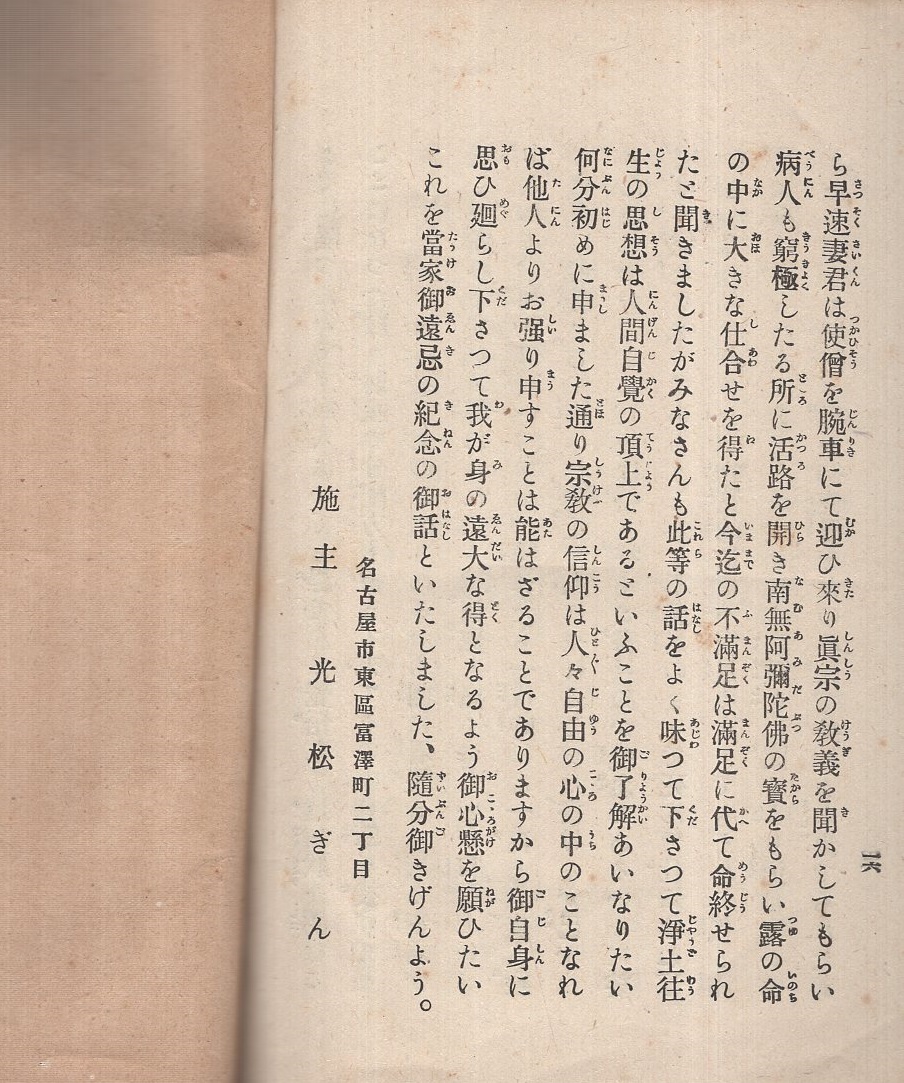 ら早速妻君は使僧を腕車にて迎ひ來り眞宗の敎義を聞かしてもらい
病人も窮極したる所に活路を開き南無阿彌陀佛の寳をもらい露の命
の中に大きな仕合せを得たと今迄の不滿足は滿足に代て命終せられ
たと聞きましたがみなさんも此等の話をよく味つて下さつて淨土往
生の思想は人間自覺の頂上であるといふことを御了解あいなりたい
何分初めに申ました通り宗敎の信仰は人々自由の心の中のことなれ
ば他人よりお强り申すことは能はざることでありますから御自身に
思ひ廻らし下さつて我が身の遠大な得となるよう御心懸を願ひたい
これを當家御遠忌の紀念の御話といたしました、隨分御きげんよう。
名古屋市東區富澤町二丁目
施主光松ぎん
一六